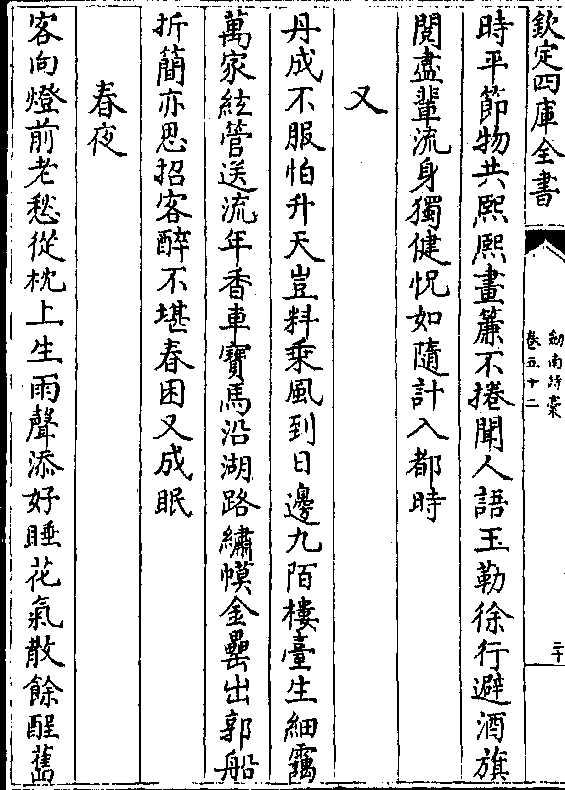 欽定四庫全書
劒南詩稾
卷五十二
二十
時平節物共熙熙畫簾不捲聞人語玉勒徐行避酒旗
閱盡輩流身獨健怳如隨計入都時
又
丹成不服怕升天豈料乘風到日邊九陌樓臺生細靄
萬家絃管送流年香車寶馬沿湖路繡幙金罍出郭船
折簡亦思招客醉不堪春困又成眠
春夜
客向燈前老愁從枕上生雨聲添好睡花氣散餘酲舊